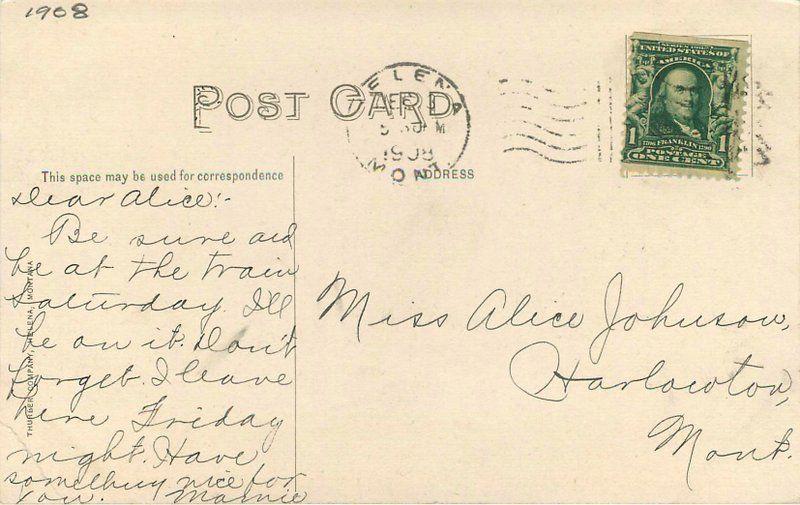 1908
POST CARD
HELENA
5 30 PM
1908
MONT.
SERIES 1902
UNITED STATES OF
AMERICA
1 1
1706 FRANKLIN 1790
POSTAGE
ONE CENT
This space may be used for correspondence
ADDRESS
THURBER COMPANY, HELENA, MONTANA
Dear Alice:-
Be sure and
be at the train
Saturday. I'll
be on it. Don't
forget. I leave
here Friday
night. Have
something nice for
you. Mamie
Miss Alice Johnson,
Harlowton,
Mont.